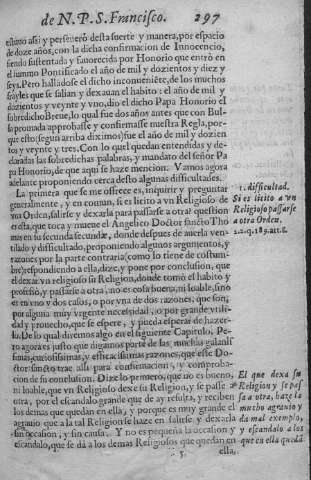 de N. P. S. Francisco. 297
estuuo assi y perseueró desta suerte y manera, por espacio
de doze años, con la dicha confirmacion de Innocencio,
siendo sustentada y fauorecida por Honorio que entrò en
el summo Pontificado el año de mil y dozientos y diez y
seys. Pero hallādose el dicho inconueniēte, de los muchos
frayles que se salian y dexauan el habito: el año de mil y
dozientos y veynte y vno, dio el dicho Papa Honorio el
sobredicho Breue, lo qual fue dos años antes que con Bul-
la promada approbasse y confirmasse nuestra Regla, por-
que esto (segun arriba diximos) fue el año de mil y dozien
tos y veynte y tres. Con lo quel quedan entendidas y de-
claradas las sobredichas palabras, y mandato del señor Pa
pa Honorio, de que aqui se haze mencion. Vamos agora
adelante proponiendo cerca desto algunas difficultades.
La primera que se me offrece es, inquirir y preguntar
generalmente, y en comun, si es licito a vn Religioso de
vna Orden, salirse y dexarla para passarse a otra? question
es esta, que toca y mueue el Angelico Doctor sancto Tho
mas en su secunda secundæ, donde despues de auerla ven-
tilado y difficultado, proponiendo algunos argumentos, y
razones por la parte contraria (como lo tiene de costum-
bre) respondiendo a ella, dize, y pone por conclusion, que
el dexar vn religioso su Religion, donde tomó el habito y
professò, y passarse a otra, no es cosa buena, ni loable, sino
es en vno y dos casos, o por vna de dos razones, que son,
por alguna muy vrgente necessidad, o por grande vtili-
dad y prouecho, que se espere, y pueda esperar de hazer-
lo. De lo qual diremos algo en el siguiente Capitulo. Pe-
ro agora es justo que digamos parte de las muchas galanissi
simas, curiosissimas, y efficacissimas razones, que esse Do-
ctor sancto trae alli para confirmacion, y comproba-
cion de su conclusion. Dize lo primero, que no es bueno,
ni loable, que vn Religioso dexe su Religion, y se passe a
otra, por el escandalo grande que de ay resulta, y reciben
los demas que quedan en ella, y porque es muy grande el
agrauio que a la tal Religion se haze en salirse y dexarla
sin occasion, y sin causa. Y no es pequeña la occasion y
escandalo, que se dà a los demas Religiosos que quedan en
5. ella,
1. difficultad.
Si es licito a vn
Religioso passarse
a otra Orden.
2.2.q.189.art.8.
El que dexa su
Religion y se pas
sa a otra, haze la
mucho agrauio y
da mal exemplo,
y escandalo a los
que en ella quedā